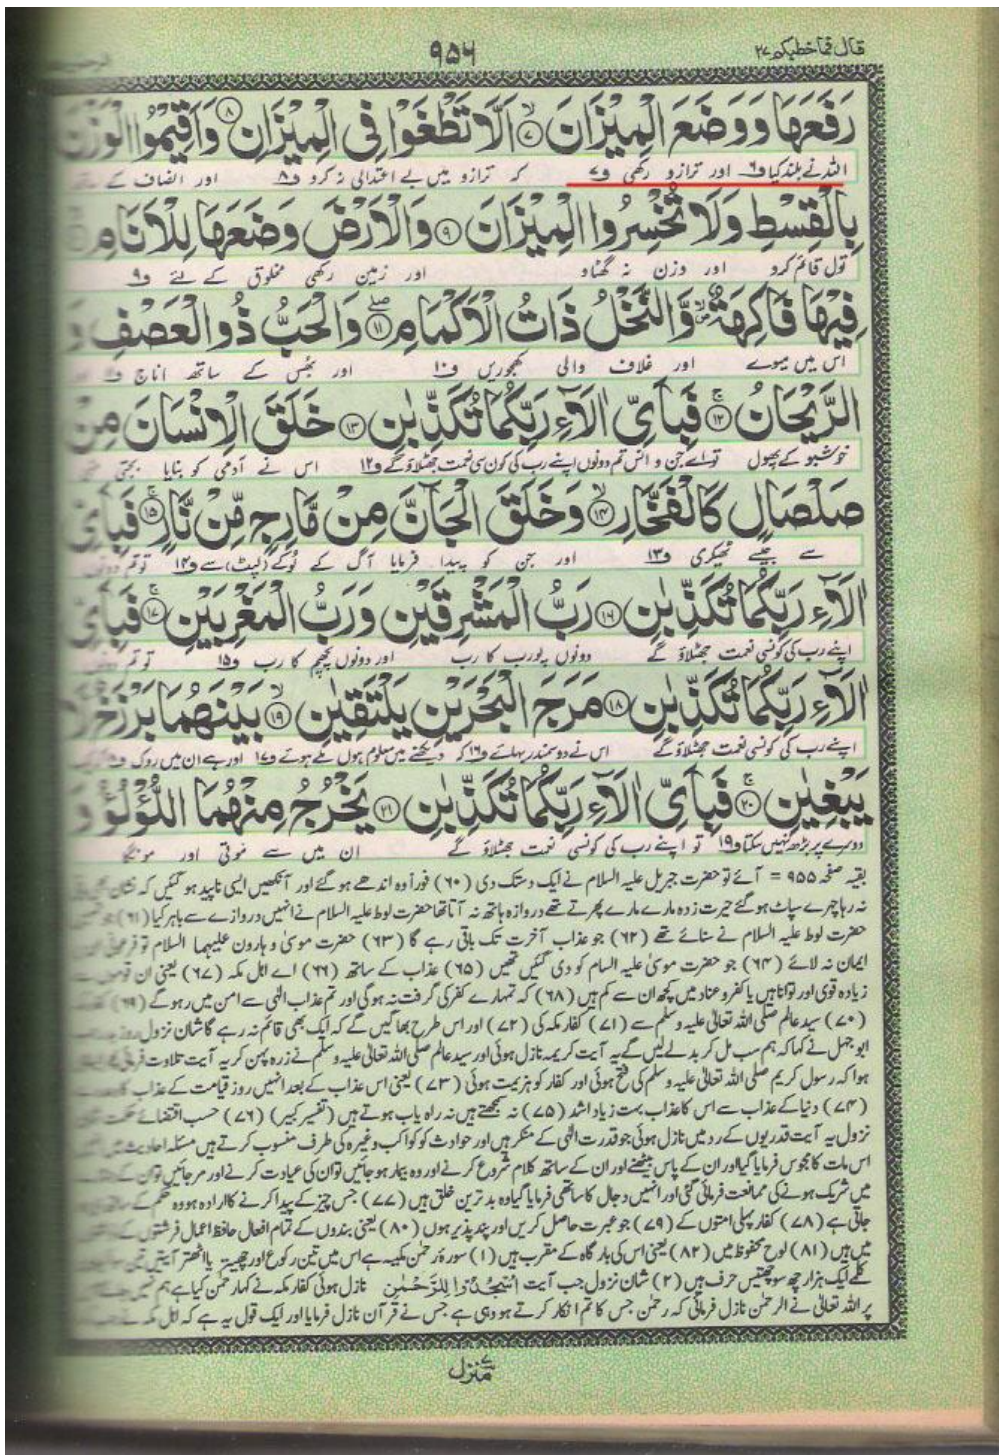 قال فما خطبکم ۲۷
۹۵۶
رَفَعَهَا وَوَضَعَ الْمِيْزَانَ ۙ﴿۷﴾ اَلَّا تَطْغَوْا فِی الْمِيْزَانِ ﴿۸﴾ وَاَقِيْمُوا الْوَزْنَ
اللہ نے بلند کیا و۶ اور ترازو رکھی و۷ کہ ترازو میں بے اعتدالی نہ کرو و۸ اور انصاف کے
بِالْقِسْطِ وَلَا تُخْسِرُوا الْمِيْزَانَ ﴿۹﴾ وَالْاَرْضَ وَضَعَهَا لِلْاَنَامِ
تول قائم کرو اور وزن نہ گھٹاو اور زمین رکھی مخلوق کے لئے و۹
فِيْهَا فَاكِهَةٌ ۙ وَّالنَّخْلُ ذَاتُ الْاَكْمَامِ ۖ﴿۱۱﴾ وَالْحَبُّ ذُو الْعَصْفِ وَ
اس میں میوے اور غلاف والی کھجوریں و۱۰ اور بھُس کے ساتھ اناج
الرَّيْحَانُ ۚ﴿۱۲﴾ فَبِاَیِّ اٰلَآءِ رَبِّكُمَا تُكَذِّبٰنِ ﴿۱۳﴾ خَلَقَ الْاِنْسَانَ مِنْ
خوشبو کے پھول تو اے جن و انس تم دونوں اپنے رب کی کون سی نعمت جھٹلاؤ گے و۱۲ اس نے آدمی کو بنایا بجتی
صَلْصَالٍ كَالْفَخَّارِ ۙ﴿۱۴﴾ وَخَلَقَ الْجَآنَّ مِنْ مَّارِجٍ مِّنْ نَّارٍ ۚ﴿۱۵﴾ فَبِاَیِّ
سے جیسے ٹھیکری و۱۳ اور جن کو پیدا فرمایا آگ کے لُوکے (لپٹ) سے و۱۴ تو تم دونوں
اٰلَآءِ رَبِّكُمَا تُكَذِّبٰنِ ﴿۱۶﴾ رَبُّ الْمَشْرِقَيْنِ وَرَبُّ الْمَغْرِبَيْنِ ۚ﴿۱۷﴾ فَبِاَیِّ
اپنے رب کی کونسی نعمت جھٹلاؤ گے دونوں پورب کا رب اور دونوں پچھم کا رب و۱۵ تو تم
اٰلَآءِ رَبِّكُمَا تُكَذِّبٰنِ ﴿۱۸﴾ مَرَجَ الْبَحْرَيْنِ يَلْتَقِيٰنِ ۙ﴿۱۹﴾ بَيْنَهُمَا بَرْزَخٌ
اپنے رب کی کونسی نعمت جھٹلاؤ گے اس نے دو سمندر بہائے و۱۶ کہ دیکھنے میں معلوم ہوں ملے ہوئے و۱۷ اور ہے ان میں روک
يَبْغِيٰنِ ۚ﴿۲۰﴾ فَبِاَیِّ اٰلَآءِ رَبِّكُمَا تُكَذِّبٰنِ ﴿۲۱﴾ يَخْرُجُ مِنْهُمَا اللُّؤْلُؤُ وَ
دوسرے پر بڑھ نہیں سکتا و۱۹ تو اپنے رب کی کونسی نعمت جھٹلاؤ گے ان میں سے موتی اور مونگا
بقیہ صفحہ ۹۵۵ = آئے تو حضرت جبریل علیہ السلام نے ایک دستک دی (۶۰) فوراً وہ اندھے ہو گئے اور آنکھیں ایسی ناپید ہو گئیں کہ نشان بھی
نہ رہا چہرے سپاٹ ہو گئے حیرت زدہ مارے مارے پھرتے تھے دروازہ ہاتھ نہ آتا تھا حضرت لوط علیہ السلام نے انہیں دروازے سے باہر کیا (۶۱) جو
حضرت لوط علیہ السلام نے سنائے تھے (۶۲) جو عذاب آخرت تک باقی رہے گا (۶۳) حضرت موسیٰ و ہارون علیہما السلام تو فرعونی
ایمان نہ لائے (۶۴) جو حضرت موسیٰ علیہ السلام کو دی گئیں تھیں (۶۵) عذاب کے ساتھ (۶۶) اے اہل مکہ (۶۷) یعنی ان قوموں سے
زیادہ قوی اور توانا ہیں یا کفر و عناد میں کچھ ان سے کم ہیں (۶۸) کہ تمہارے کفر کی گرفت نہ ہو گی اور تم عذاب الٰہی سے امن میں رہو گے (۶۹) کفار
(۷۰) سید عالم صلی اللہ تعالیٰ علیہ وسلم سے (۷۱) کفار مکہ کی (۷۲) اور اس طرح بھاگیں گے کہ ایک بھی قائم نہ رہے گا شان نزول روز
ابو جہل نے کہا کہ ہم سب مل کر بدلہ لے لیں گے یہ آیت کریمہ نازل ہوئی اور سید عالم صلی اللہ تعالیٰ علیہ وسلم نے زرہ پہن کر یہ آیت تلاوت فرمائی
ہوا کہ رسول کریم صلی اللہ تعالیٰ علیہ وسلم کی فتح ہوئی اور کفار کو ہزیمت ہوئی (۷۳) یعنی اس عذاب کے بعد انہیں روز قیامت کے عذاب کا
(۷۴) دنیا کے عذاب سے اس کا عذاب بہت زیادہ اشد (۷۵) نہ سمجھتے ہیں نہ راہ یاب ہوتے ہیں (تفسیر کبیر) (۷۶) حسب اقتضائے حکمت
نزول یہ آیت قدریوں کے رد میں نازل ہوئی جو قدرت الٰہی کے منکر ہیں اور حوادث کو کواکب وغیرہ کی طرف منسوب کرتے ہیں مسئلہ احادیث میں
اس مات کا مجوس فرمایا گیا اور ان کے پاس بیٹھنے اور ان کے ساتھ کلام شروع کرنے اور وہ بیمار ہو جائیں تو ان کی عیادت کرنے اور مر جائیں تو ان کے
میں شریک ہونے کی ممانعت فرمائی گئی اور انہیں دجال کا ساتھی فرمایا گیا وہ بدترین خلق ہیں (۷۷) جس چیز کے پیدا کرنے کا ارادہ ہو وہ حکم کے ساتھ
جاتی ہے (۷۸) کفار پہلی امتوں کے (۷۹) جو عبرت حاصل کریں اور پند پذیر ہوں (۸۰) یعنی بندوں کے تمام افعال حافظ اعمال فرشتوں کے
میں ہیں (۸۱) لوح محفوظ میں (۸۲) یعنی اس کی بارگاہ کے مقرب ہیں (۱) سورۂ رحمٰن مکیہ ہے اس میں تین رکوع اور چھہتر یا اٹھتر آیتیں تین سو
کلمے ایک ہزار چھ سو چھتیس حرف ہیں (۲) شان نزول جب آیت اُسْجُدُوْا لِلرَّحْمٰنِ نازل ہوئی کفار مکہ نے کہا رحمٰن کیا ہے ہم نہیں
پر اللہ تعالیٰ نے الرحمٰن نازل فرمائی کہ رحمٰن جس کا تم انکار کرتے ہو وہی ہے جس نے قرآن نازل فرمایا اور ایک قول یہ ہے کہ اہل مکہ نے
منزل ۷